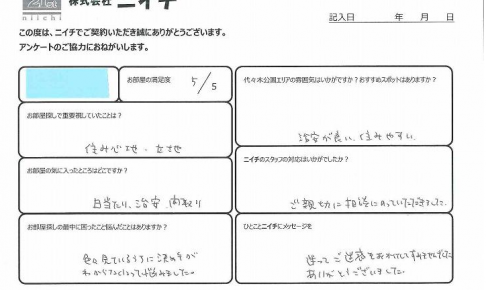 株式会社 ニイチ
niichi
記入日 年 月 日
この度は、ニイチでご契約いただき誠にありがとうございます。
アンケートのご協力におねがいします。
お部屋の満足度 5/5
代々木公園エリアの雰囲気はいかがですか?おすすめスポットはありますか?
治安が良い、住みやすい
お部屋探しで重要視していたことは?
住み心地・立地
ニイチのスタッフの対応はいかがでしたか?
ご親切に相談にのっていただきました。
お部屋の気に入ったところはどこですか?
日当たり、治安、間取り
お部屋探しの最中に困ったこと悩んだことはありますか?
色々見ているうちに決め手が
わからなくなって悩みました。
ひとことニイチにメッセージを
迷ってご迷惑をおかけしてすみませんでした
ありがとうございました。